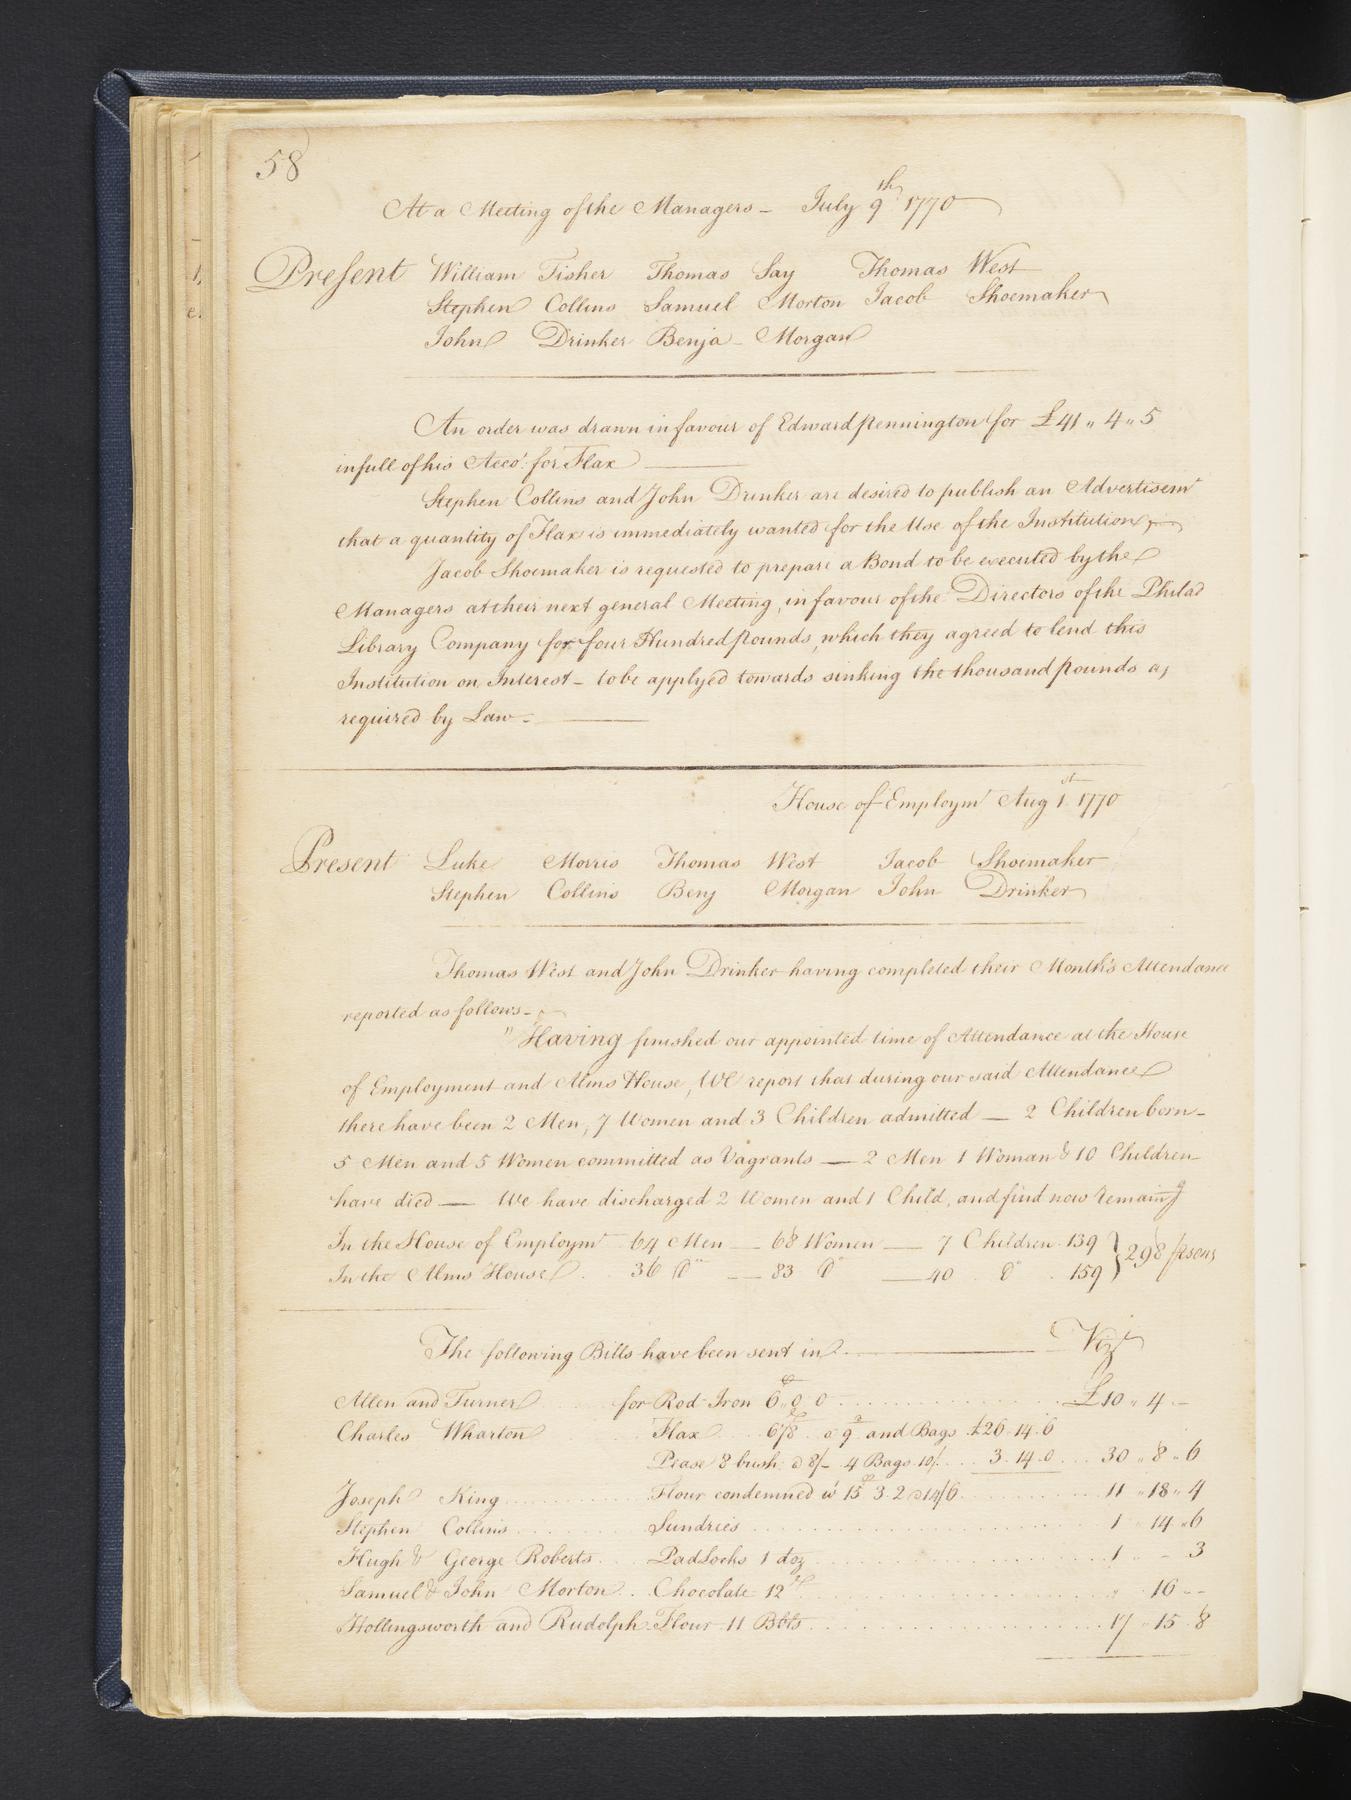 58
At a Meeting of the Managers - July 9th 1770
Present William Fisher Thomas Say Thomas West
Stephen Collins Samuel Morton Jacob Shoemaker
John Drinker Benja - Morgan
An order was drawn in favour of Edward Pennington for £41 „ 4 „ 5
in full of his Acco.t for Flax
Stephen Collins and John Drinker are desired to publish an Advertisemt
that a quantity of Flax is immediately wanted for the Use of the Institution
Jacob Shoemaker is requested to prepare a Bond to be executed by the
Managers at their next general Meeting, in favour of the Directors of the Philad
Library Company for four Hundred pounds, which they agreed to lend this
Institution on Interest - to be applyed towards sinking the thousand pounds as
required by Law -
House of Employmt Aug 1st 1770
Present Luke Morris Thomas West Jacob Shoemaker
Stephen Collins Benj Morgan John Drinker
Thomas West and John Drinker having completed their Month's Attendance
reported as follows -
" Having finished our appointed time of Attendance at the House
of Employment and Alms House, We report that during our said Attendance
there have been 2 Men, 7 Women and 3 Children admitted — 2 Children born -
5 Men and 5 Women committed as Vagrants — 2 Men 1 Woman & 10 Children
have died — We have discharged 2 Women and 1 Child, and find now remaing
In the House of Employmt 64 Men — 68 Women — 7 Children . 139 } 298 psons
In the Alms House . 36 Do — 83 Do — 40 . Do . 159
The following Bills have been sent in Vizt
Allen and Turner for Rod Iron 6 „ 0 0 £10 „ 4 „ -
Charles Wharton Flax 678 a 9d and Bags £26 . 14 . 6
Pease 8 bush. @ 8/- 4 Bags 10/. 3 . 14 . 0 30 „ 8 „ 6
Joseph King Flour condemned wt 15 3 . 2 @ 14/6 11 „ 18 „ 4
Stephen Collins Sundries 1 „ 14 „ 6
Hugh & George Roberts Pad Locks 1 doz 1 „ - 3
Samuel & John Morton Chocolate 12 lb „ 16 - -
Hollingsworth and Rudolph Flour 11 Bbls 17 „ 15 . 8